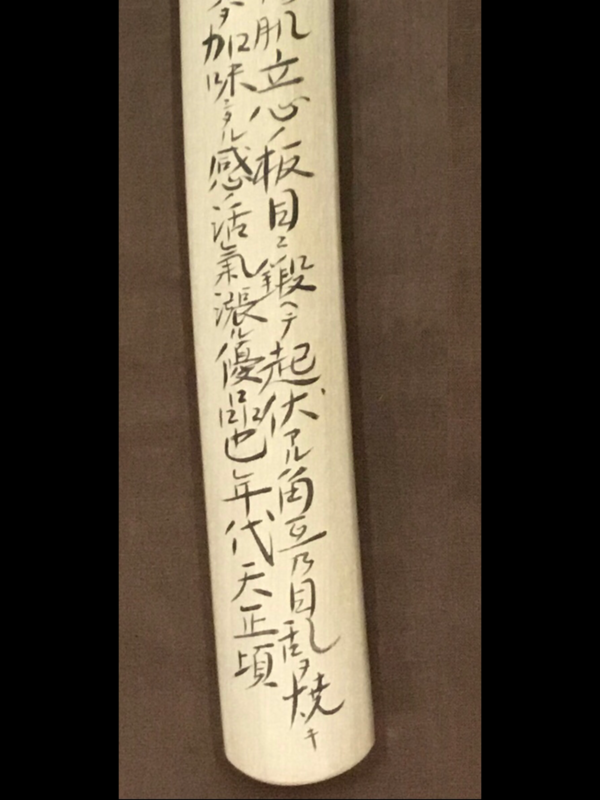 肌立心ノ板目ニ鍛ヘテ起伏アル角互乃目乱ヲ焼キ
加味シタル感ノ活氣漲ル優品也年代天正頃